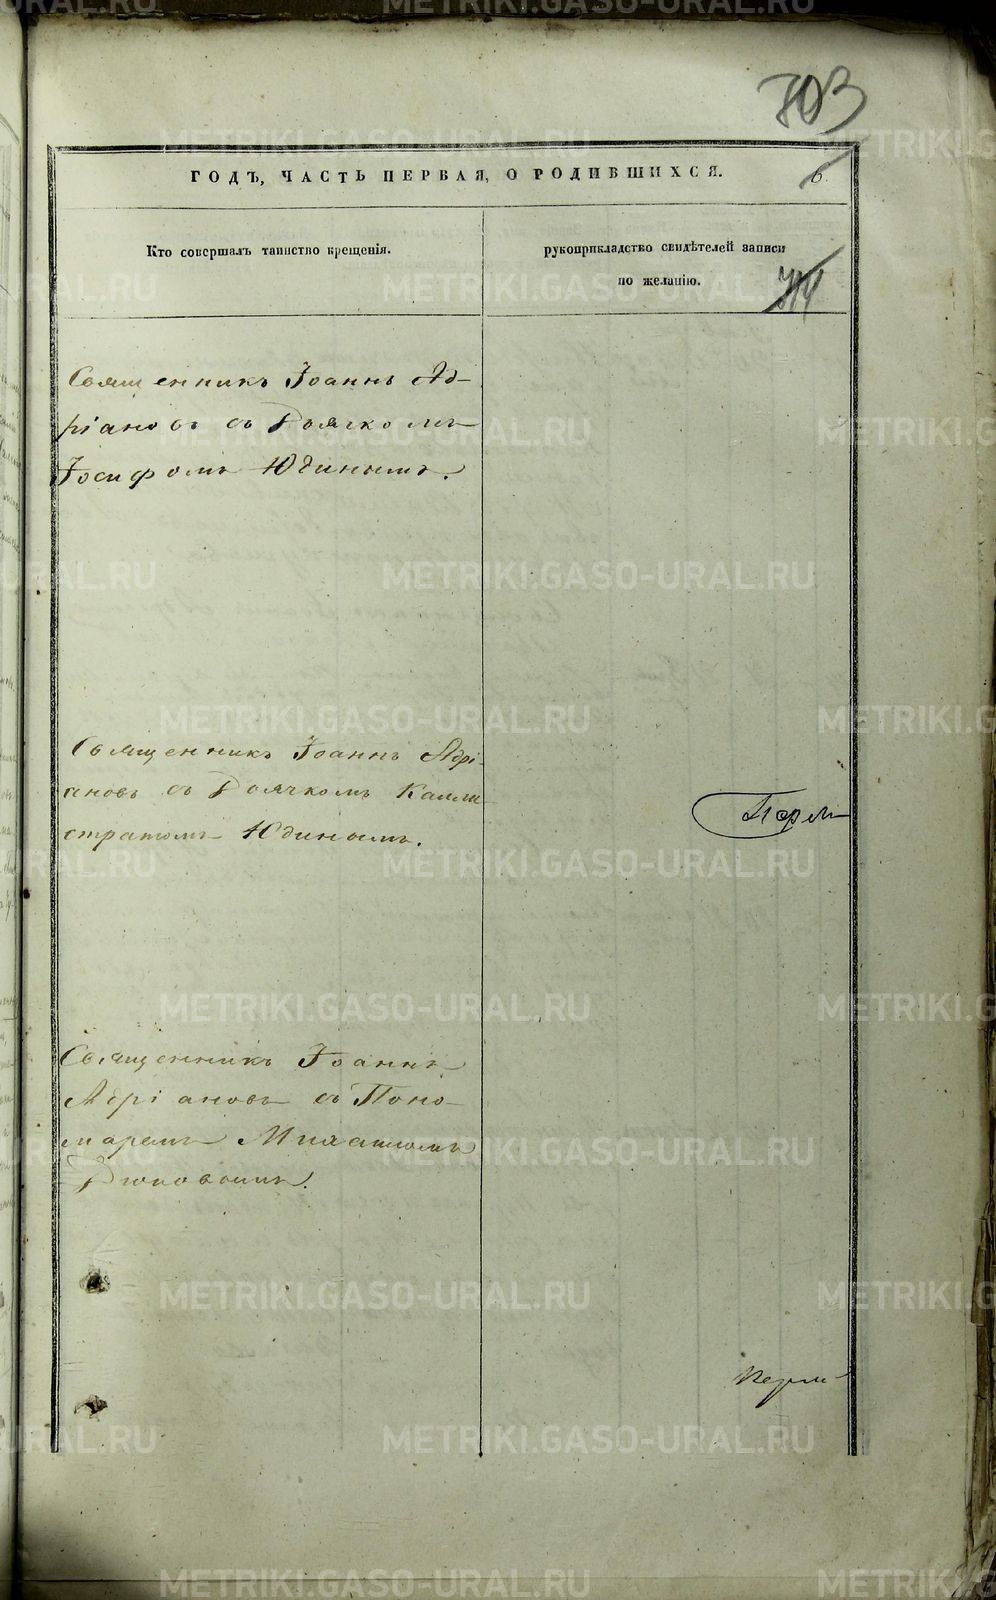 703
ГОДЪ, ЧАСТЬ ПЕРВАЯ, О РОДИВШИХСЯ.
6.
Кто совершалъ таинство крещенія.
рукоприкладство свидѣтелей записи
по желанію.
Священникъ Іоаннъ Ад-
ріановъ съ Дьячкомъ
Іосифомъ Юдинымъ.
Священникъ Іоаннъ Адрі-
ановъ съ Дьячкомъ Калли-
стратомъ Юдинымъ.
Священникъ Іоаннъ
Адріановъ съ Поно-
маремъ Михаиломъ
METRIKI.GASO-URAL.RU